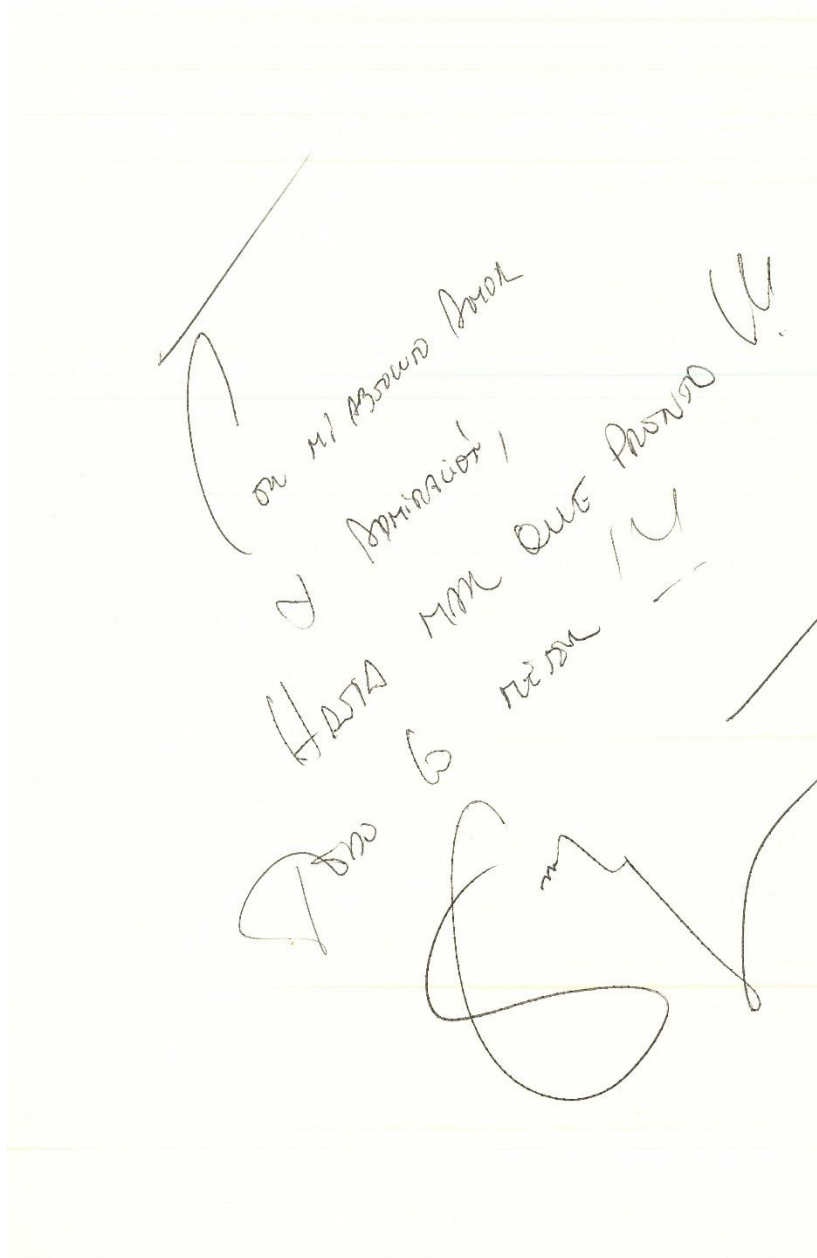 Con mi absoluto Amor
y Admiración,
HASTA MAR QUE PRONTO !!!
Todo lo mejor !!!